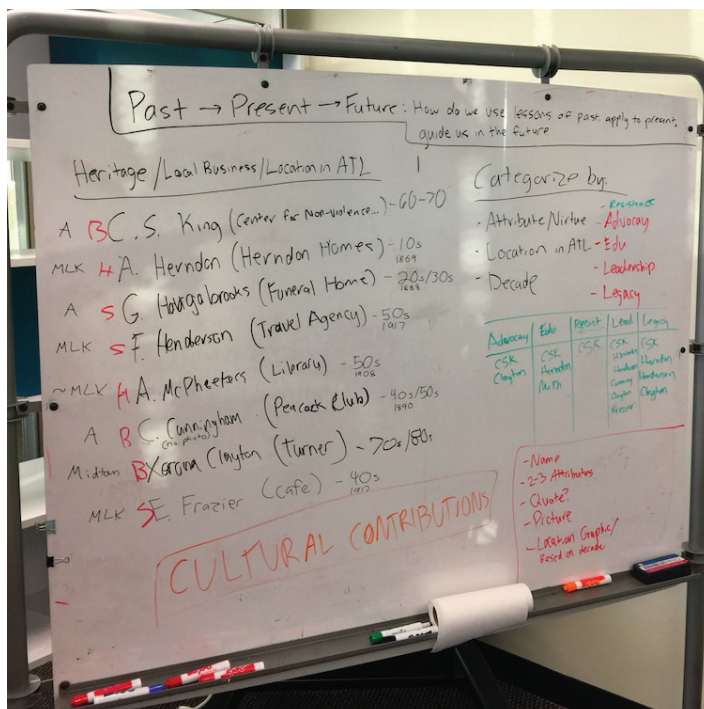 Past → Present → Future: How do we use lessons of past, apply to present,
guide us in the future
Heritage/Local Business/Location in ATL
A B C.S. King (Center for Non-violence...) - 60-70
MLK H A. Herndon (Herndon Homes) - 10s
1869
A S G. (Funeral Home) - 20s/30s
1888
MLK S F. Henderson (Travel Agency) - 50s
1917
~MLK H A. McPheeters (Library) - 50s
1908
A B C. Cunningham (Peacock Club) - 40s/50s
(no photo) 1890
Midtown B Xerona Clayton (Turner) - 70s/80s
MLK S E. Frazier (cafe) - 40s
CULTURAL CONTRIBUTIONS
Categorize by:
• Attribute/Virtue
• Location in ATL
• Decade
- Resistance
- Advocay
- Edu
- Leadership
- Legacy
Advocacy Edu Resist Lead Legacy
CSK CSK CSK CSK CSK
Clayton Herndon Herndon Herndon
McPh Henderson Henderson
Clayton Clayton
Frazier
- Name
- 2-3 Attributes
- Quote?
- Picture
- Location Graphic/
Based on decade
EXPO